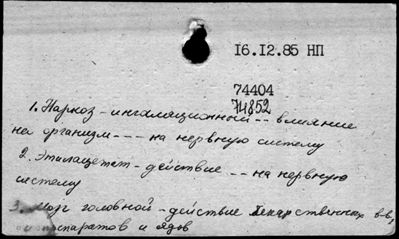 16.12.85 НП
74404
74852
1. Наркоз - ингаляционный -- влияние
на организм --- на нервную систему
2. Этилацетат - действие -- на нервную
систему
3. Мозг головной - действие лекарственных в-в,
препаратов и ядов